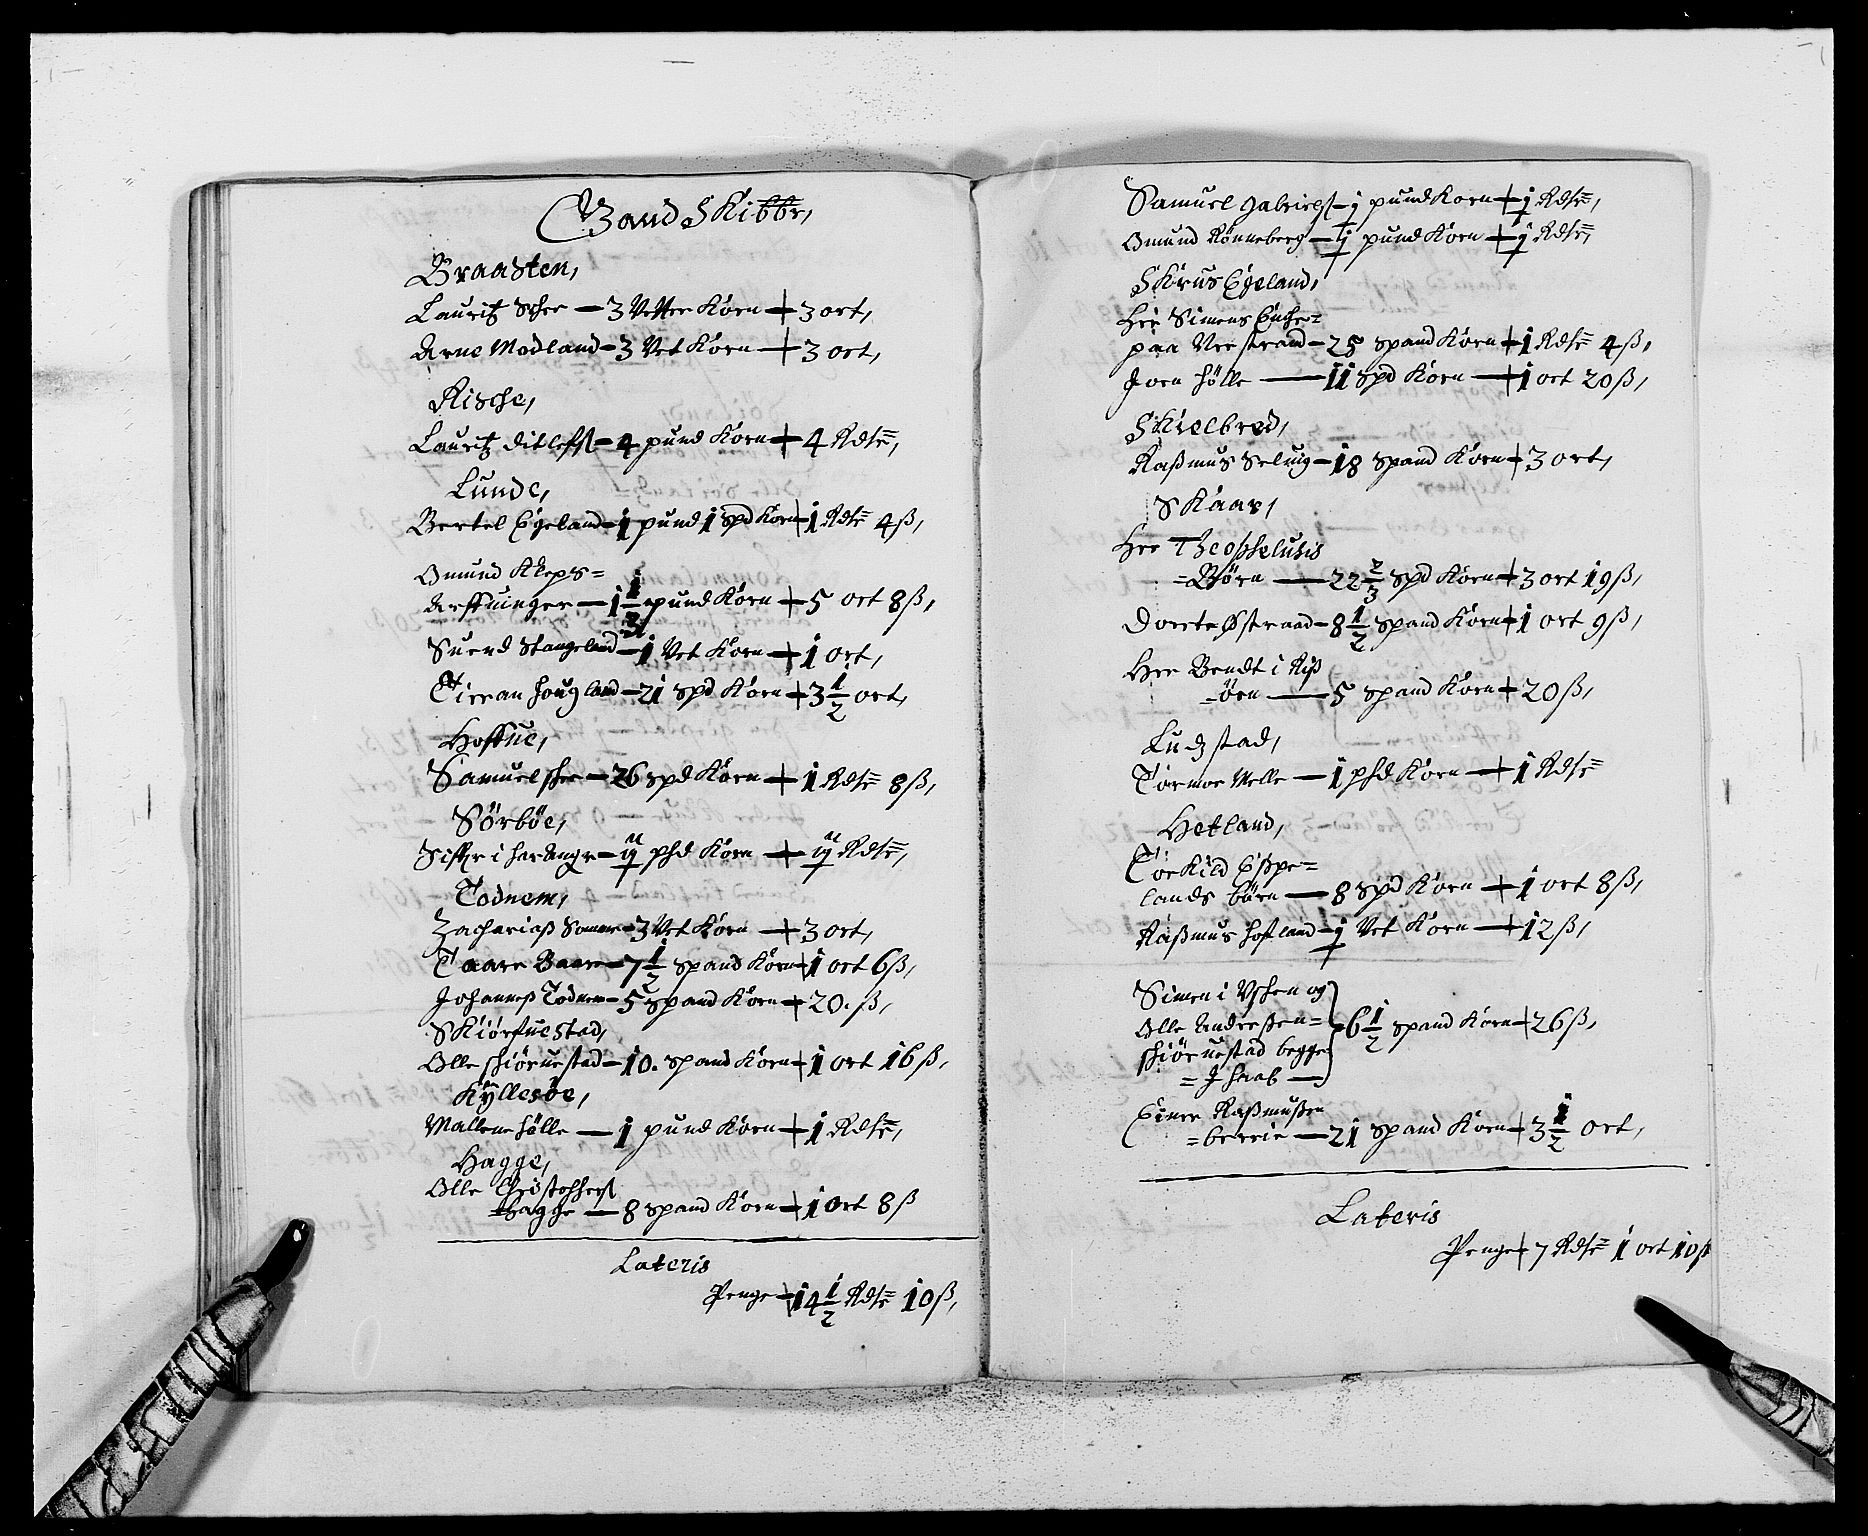 Gand Skibbr,
Braasten,
Lauritz Scher — 3 Vetter Korn + 3 ort,
Arne Modland – 3 Vet Korn + 3 ort,
Rische,
Lauritz Ditlefs – 4 pund Korn + 4 Rdlr,
Lunde,
Bertel Eigeland – 1 pund 1 spd Korn + 1 Rdlr 4 ß,
Omund Kleps=
Arffuinger — 1 1/3 pund Korn + 5 ort 8 ß,
Suend Stangeland – 1 Vet Korn + 1 ort,
Tieran Hougland – 21 spd Korn + 3 1/2 ort,
Hoffue,
Samuel — 26 spd Korn + 1 Rdlr 8 ß,
Sörböe,
i – ij phd Korn + ij Rdlr,
Todnem,
Zacharias – 3 Vet Korn + 3 ort,
Taare Baare – 7 1/2 spand Korn + 1 ort 6 ß,
Johannes Todnem – 5 spand Korn + 20. ß,
Skiörfuestad,
Olle skiöruestad – 10. spand Korn + 1 ort 16 ß,
Kÿllesöe,
Mallene Hölle — 1 pund Korn + 1 Rdlr,
Hagge,
Olle Christophers
Hagge — 8 spand Korn + 1 ort 8 ß
Lateris
Penge + 14 1/2 Rdlr 10 ß,
Samuel Gabriels – j pund Korn + j Rdlr,
Omund Rönneberg – j pund Korn + j Rdlr,
Skrus Eigeland,
Her Simens Enche=
paa Veestrand – 25 spand Korn + 1 Rdlr 4 ß,
Joen Hölle — 11 spd Korn + 1 ort 20 ß,
Skielbred,
Rasmus Seluig – 18 spand Korn + 3 ort,
Skaar,
Her Theophelusis
=Börn — 22 2/3 spd Korn + 3 ort 19 ß,
Dorte Østraad – 8 1/2 spand Korn + 1 ort 9 ß,
Her Bendt i Riß
=örn — 5 spand Korn + 20 ß,
Ludzstad,
Tormor Melle — 1 phd Korn + 1 Rdlr
Hetland,
Torkild Espe=
lands börn — 8 spd Korn + 1 ort 8 ß,
Rasmus Hofland – j Vet Korn + 12 ß,
Simen i Vschen og
Olle Andreßen=
skiöruestad begge
= J haab — 6 1/2 spand Korn + 26 ß,
Einer Rasmußen
=berrie — 21 spand Korn + 3 1/2 ort,
Lateris
Penge + 7 Rdlr 1 ort 10 ß